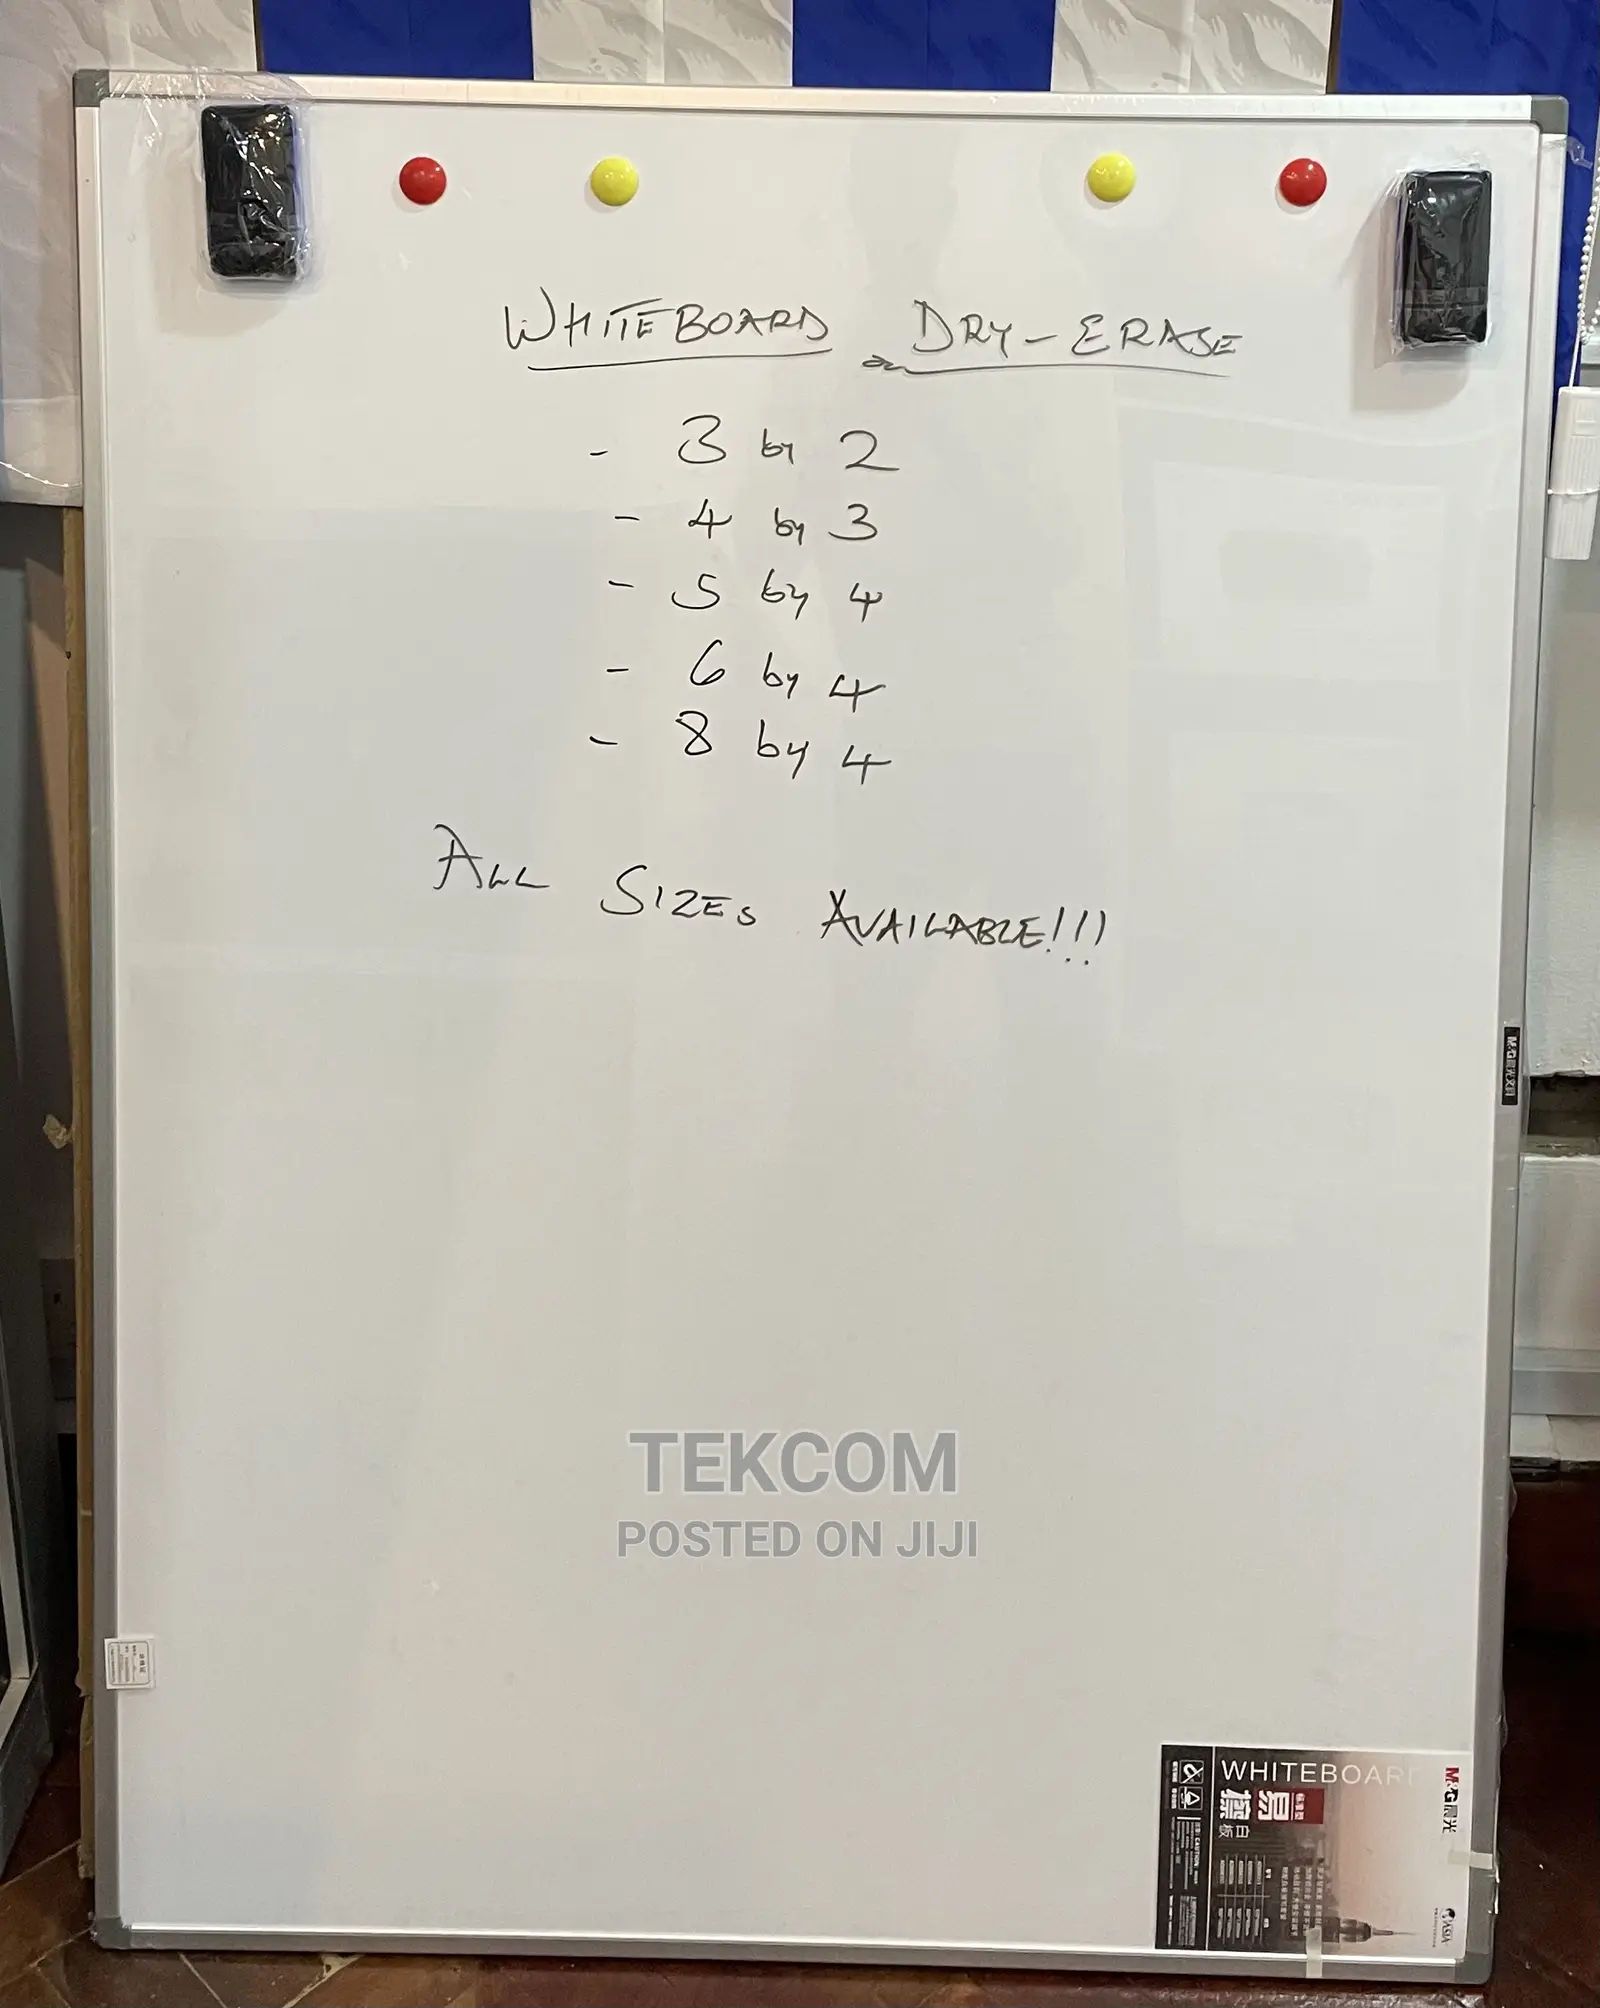 WHITEBOARD DRY-ERASE
- 3 by 2
- 4 by 3
- 5 by 4
- 6 by 4
- 8 by 4
ALL SIZES AVAILABLE!!!
M&G晨光文具
TEKCOM
POSTED ON JIJI
WHITEBOARD
M&G晨光
标准型
易擦
白板
CAUTION